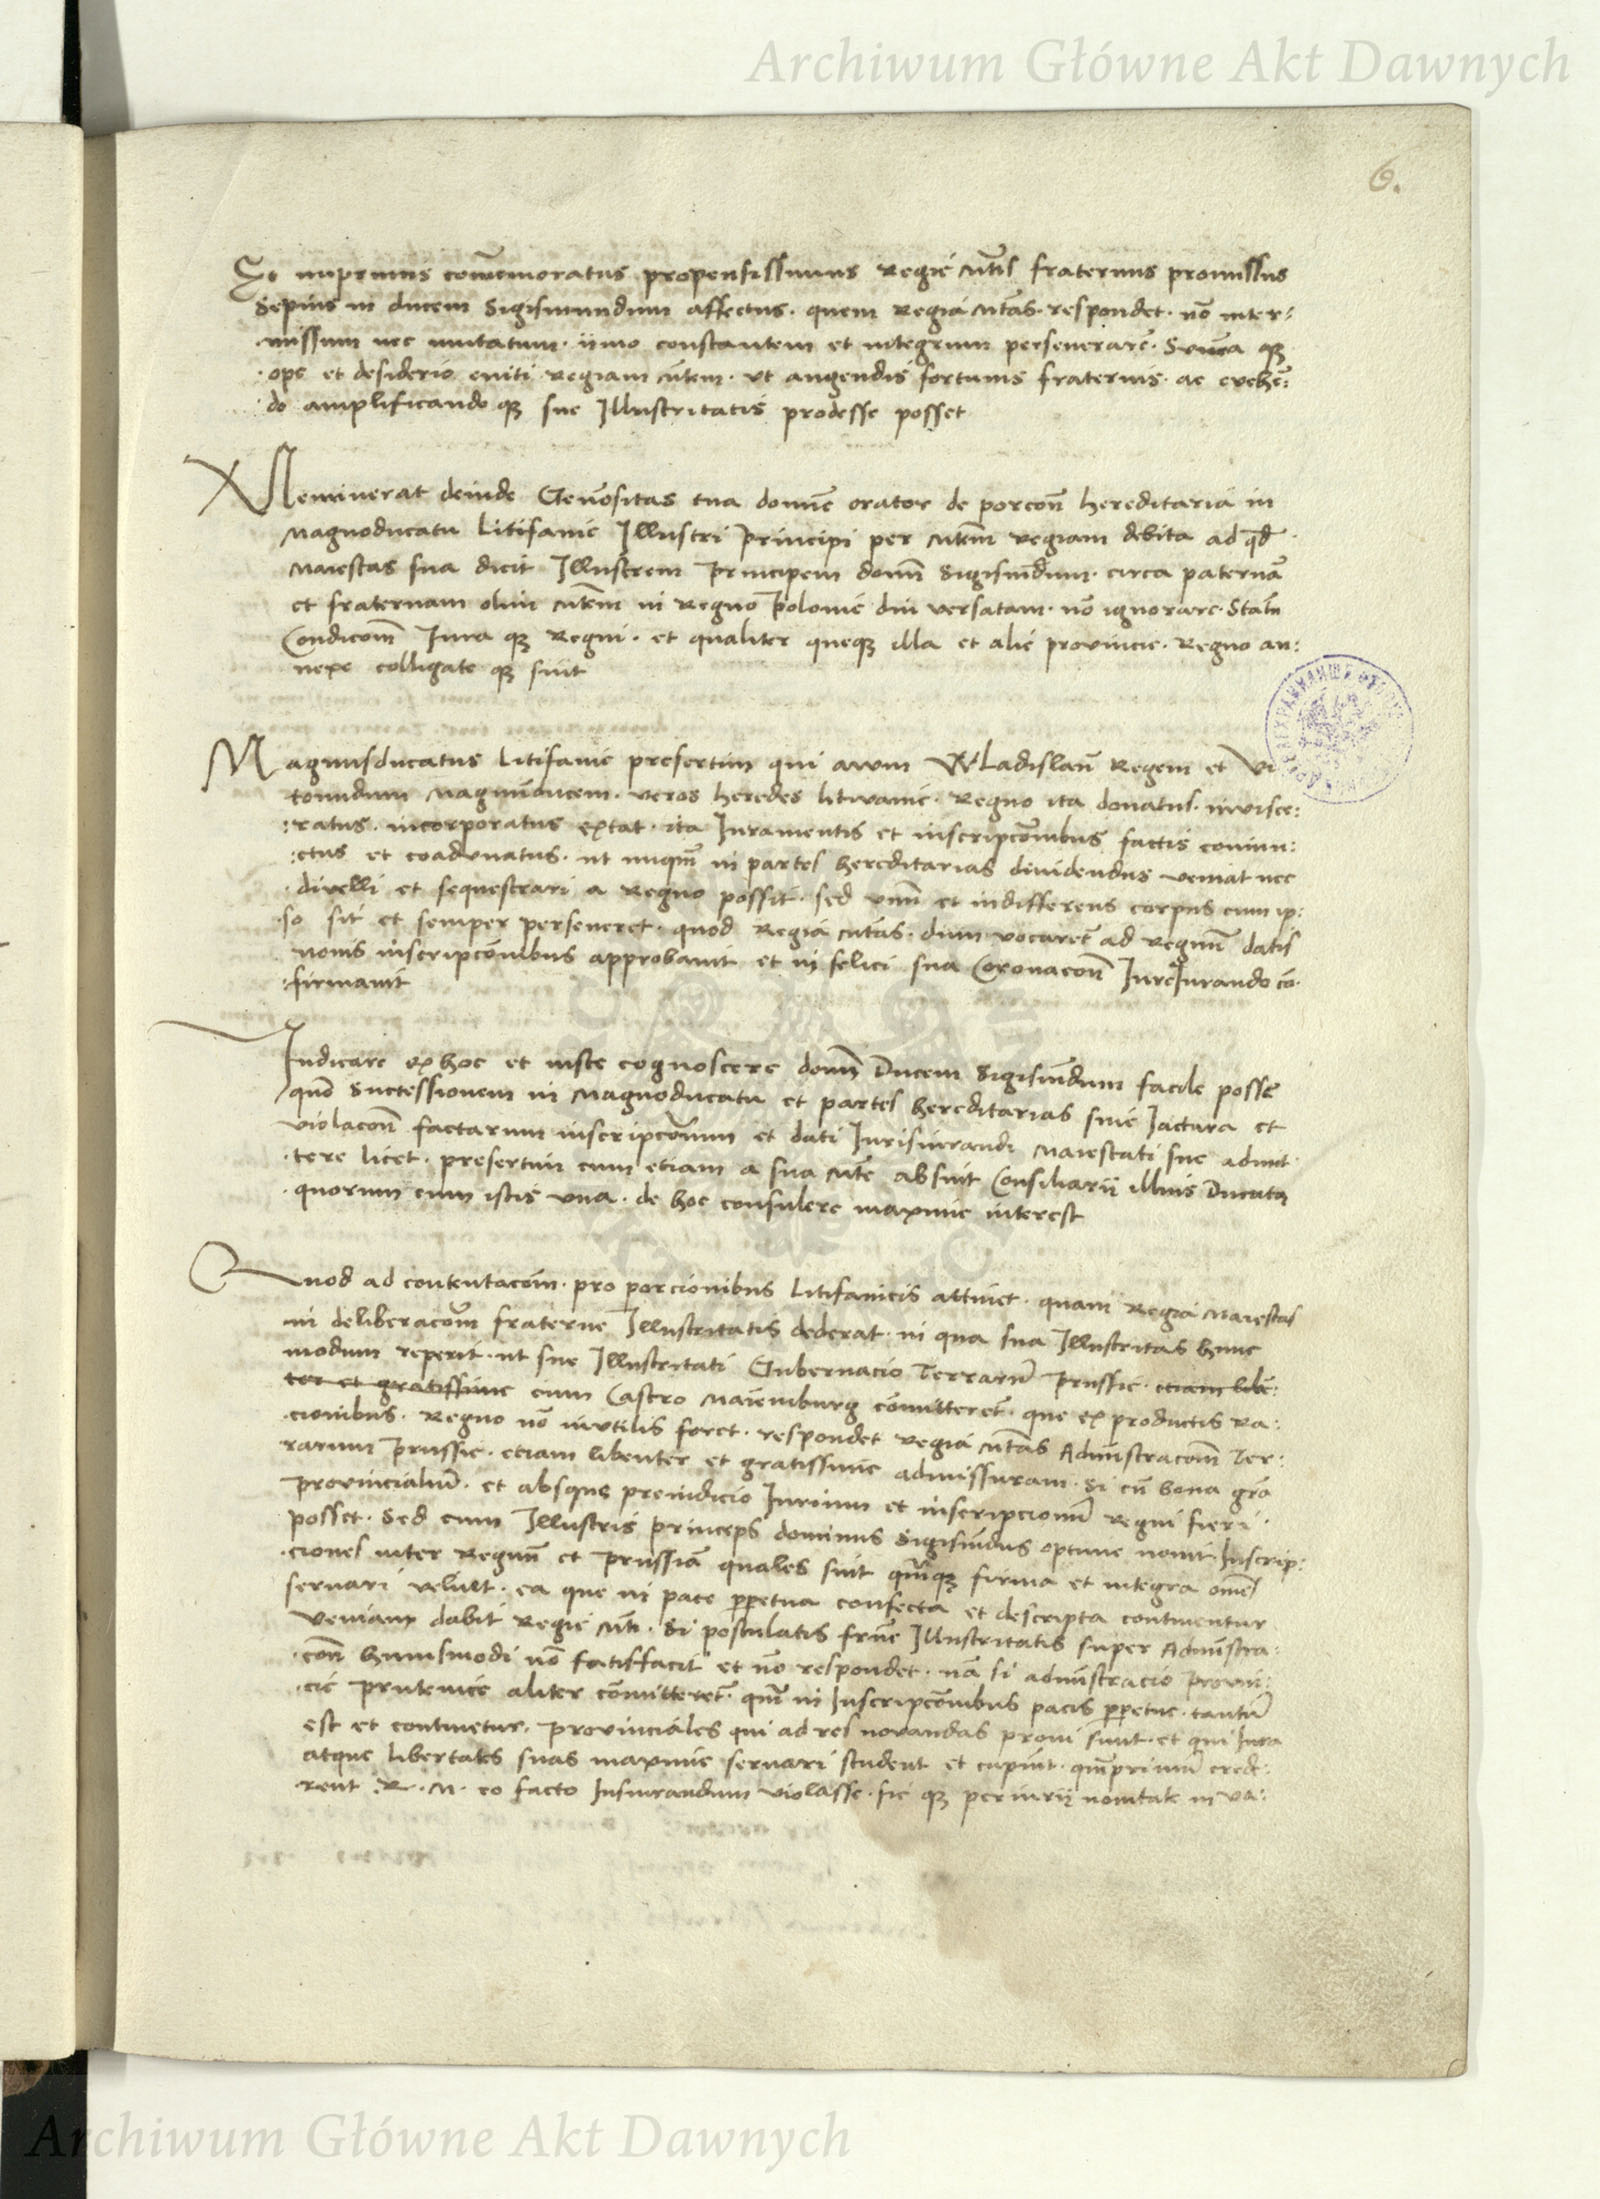 Archiwum Główne Akt Dawnych
6.
Et inprimis com̄emoratus propensissimus Regiē mt̄is fraternus promissus
Sepius in ducem Sigismundum affectus · quem Regiā mt̄as · respondet · nō inter:
missum nec mutatum · immo constantem et integrum perseverarē · Summa qȝ
ope et desiderio eniti regiam mt̄em · vt augendis fortunis fraternis · ac evehē:
do amplificando qȝ sue Illustritatis prodesse posset
Meminerat deinde Gen̄ositas tua domīe orator de porcōn̄ hereditaria in
Magnoducatu Litifanie Illustri Principi per mt̄em regiam debita ad qd̄
Maiestas sua dicit Illustrem Principem domn̄ Sigism̄dum · circa paternā
et fraternam olim mt̄em in Regno Polonie diu versatam · nō ignorare · Statū
Condicōm̄ Jura qȝ Regni · et qualiter queqȝ illa et alie provincie · Regno an:
nexe colligate qȝ sint
Magnusducatus Litifanie presertim qui avum Wladislaū Regem et Vi
toundum Magnūducem · veros heredes litwanie · Regno ita donatus · invisce:
ratus · incorporatus extat · ita Juramentis et inscripcōnibus factis coniun:
ctus et coadunatus · ut nuqm̄ in partes hereditarias dividendus veniat nec
divelli et sequestrari a Regno possit · sed vnū et indifferens corpus cum ip:
so sit et semper perseveret · quod Regiā mt̄as · dum vocaret̄ ad Regnū datis
novis inscripcōnibus approbavit et in felici sua Coronacōn̄ JureJurando cō
firmavit
Iudicare ex hoc et iuste cognoscere domn̄ Ducem Sigism̄dum facile posse
quō Successionem in Magnoducatu et partes hereditarias sine Jactura et
violacōn̄ factarum inscripcōnum et dati Jurisiurandi Maiestati sue admit
tere licet · presertim cum etiam a sua mt̄e absint Consiliarii illius Ducatꝰ
quorum cum istis vna · de hoc consulere maxime interest
Quod ad contentacōm̄ · pro porcionibus Litifanicis attinet · quam Regiā Maiestas
in deliberacōm̄ fraterne Illustritatis dederat · in qua sua Illustritas hunc
modum reperit · ut sue Illustritati Gubernacio Terrarū Prussie · etiam libē:
ter et gratissime cum Castro Mariemburg com̄itteret̄ · que ex productis ra:
cionibus · Regno nō inutilis foret · respondet regiā mt̄as Admīstracōm̄ Ter:
rarum Prussie · etiam libenter et gratissime admissuram · Si cū bona grā
Provincialiū · et absque preiudicio Jurium et inscripcionū Regni fieri ·
posset · Sed cum Illustris princeps dominus Sigism̄dus optime novit Inscrip:
ciones inter Regnū et Prussiā quales sint qm̄qȝ firma et integra om̄es
servari velint · ea que in pace perpetua confecta et descripta continentur
Veniam dabit Regiē mt̄i · Si postulatis frn̄e Illustritatis super Admīstra:
cōn̄ huiusmodi nō satisfacit et nō respondet · nā si admīstracio Provin:
cie Prutenice aliter com̄itteret̄ · qm̄ in Inscripcōnibus pacis perpetue · tantū
est et continetur · Provinciales qui ad res novandas proni sunt · et qui Jura
atque libertates suas maxime servari student et cupiūt · qm̄primū crede:
rent R · M · eo facto Iusiurandum violasse · sic qȝ periurii novitate in va:
Archiwum Główne Akt Dawnych